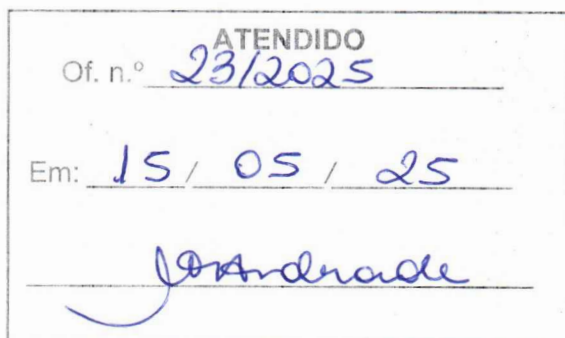 ATENDIDO
Of. n.º 23/2025
Em: 15 / 05 / 25
Andrade